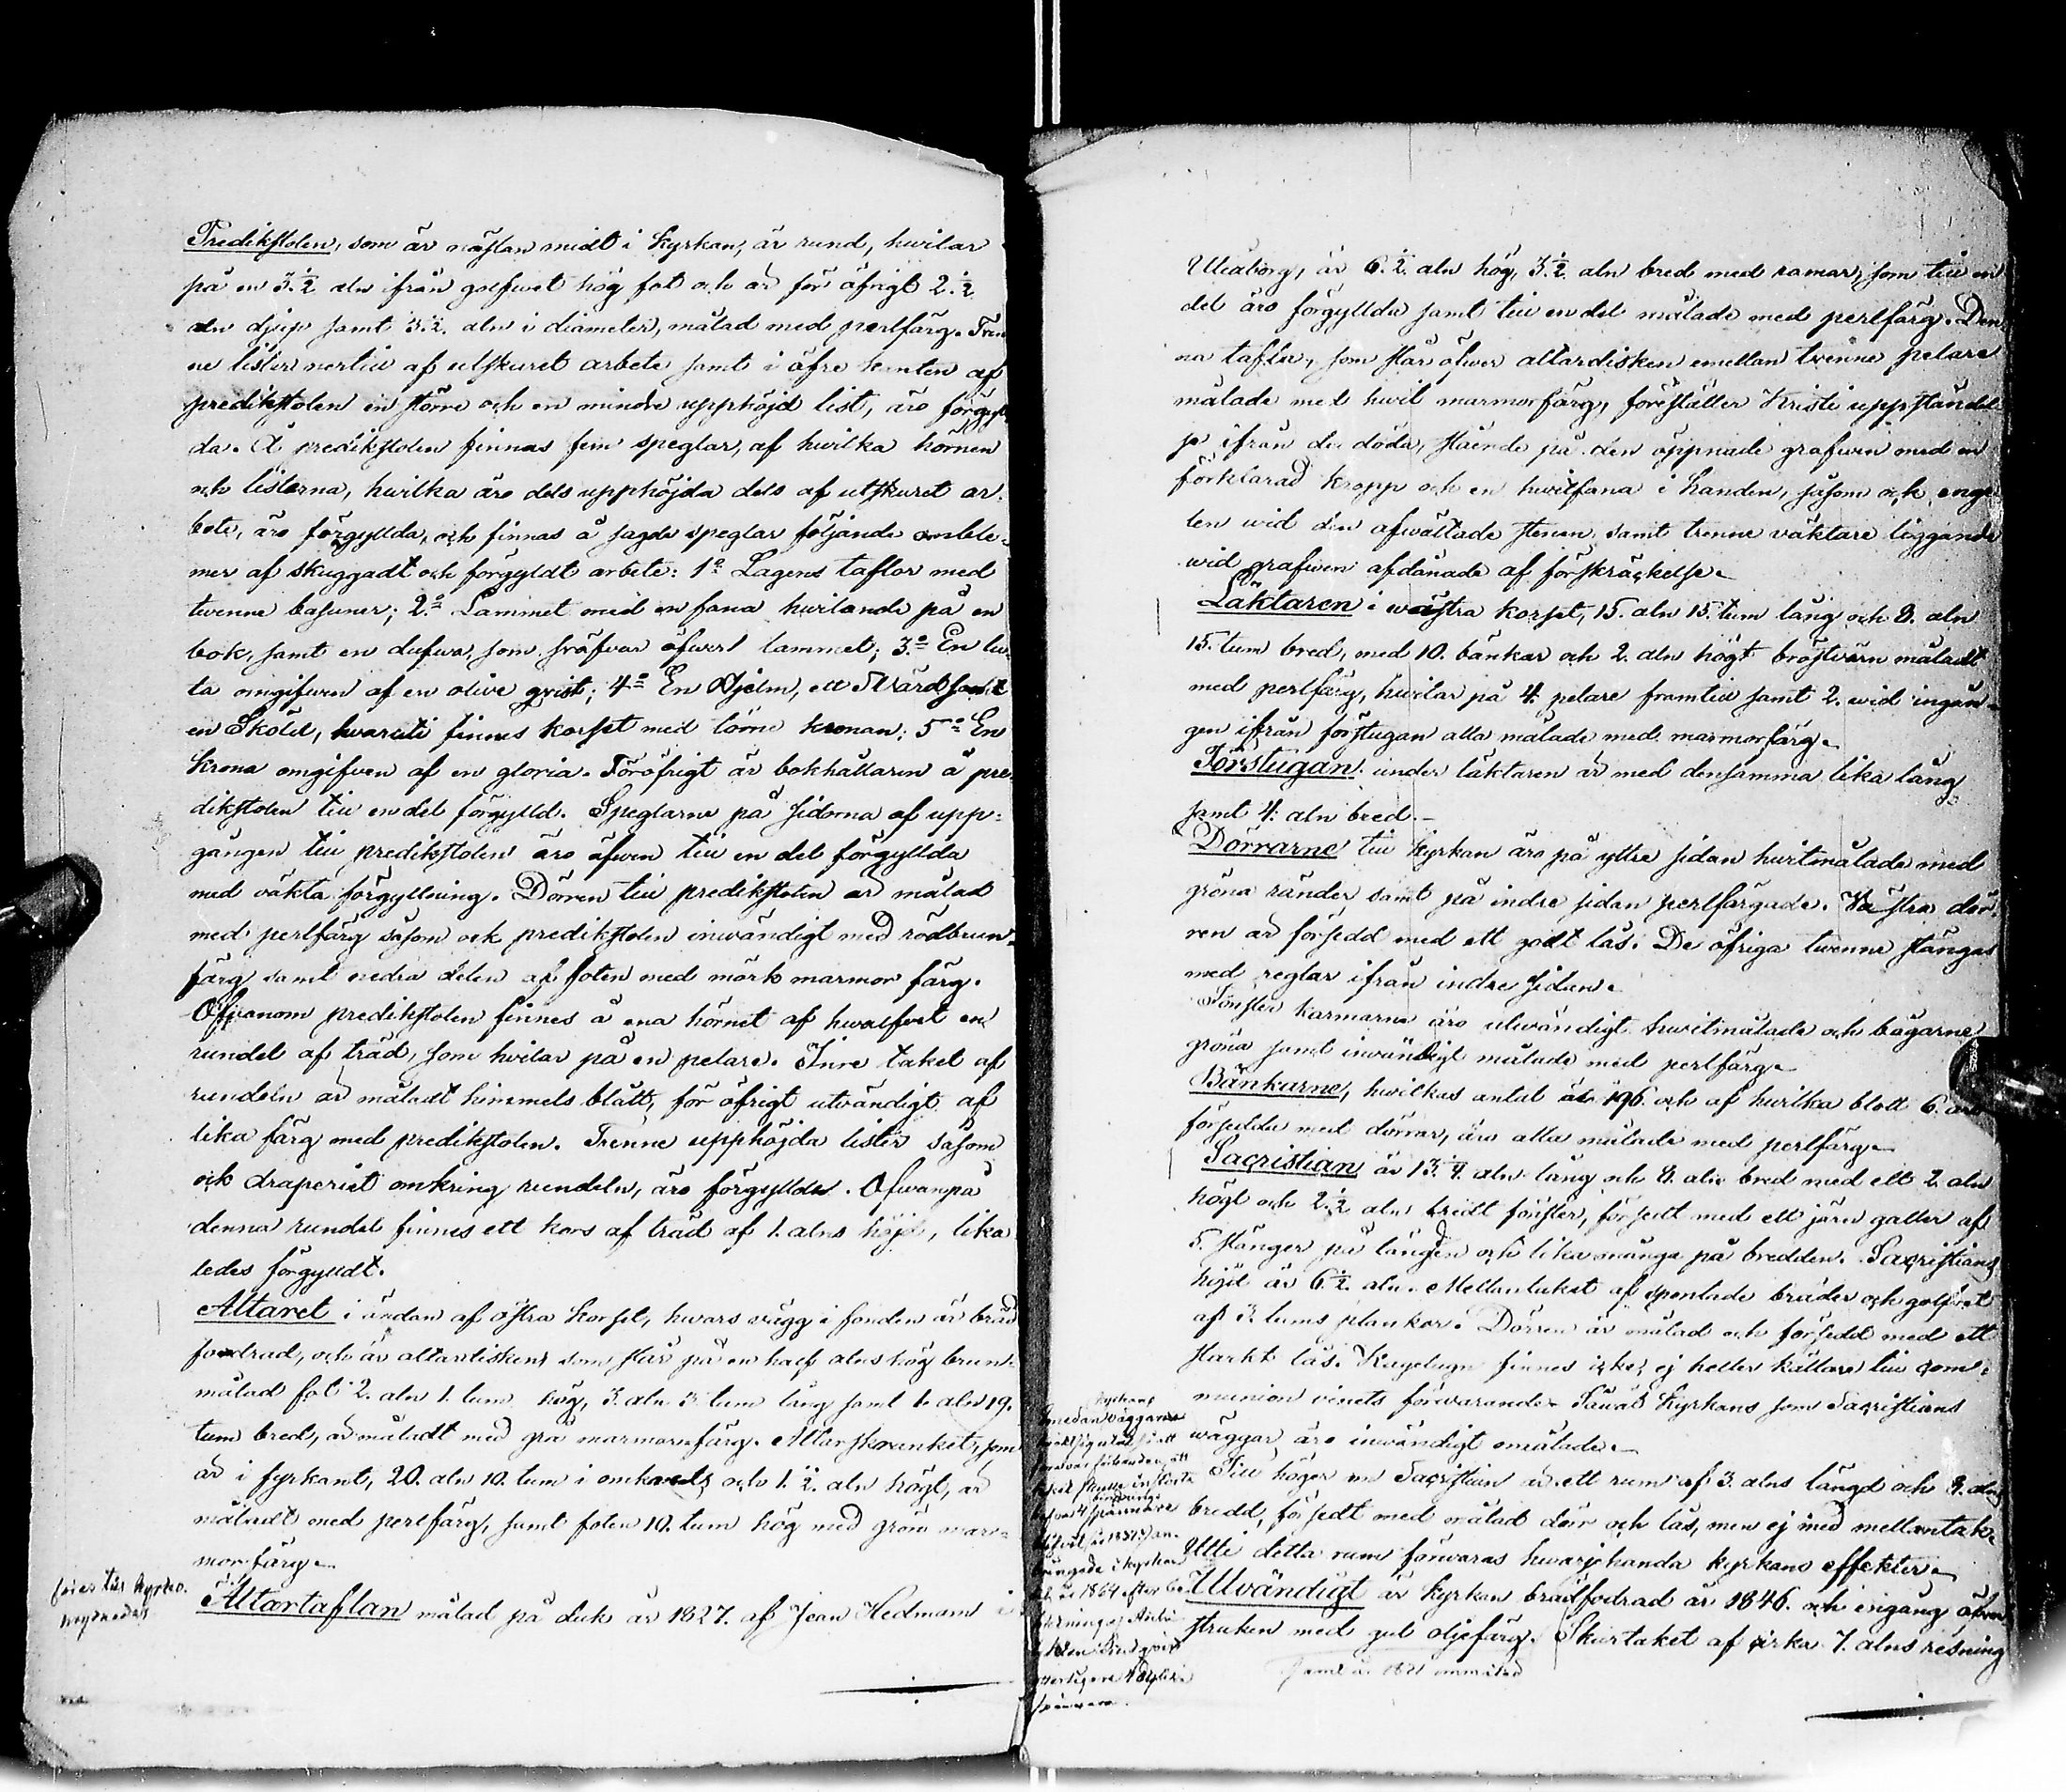 Predikstolen, som är nästan midt i Kyrkan, är rund, hwilar
på en 3.½ aln ifrån golfwet hög fot och är för öfrigt 2.½
aln djup samt 3.½. aln i diameter, målad med perlfärg. Tren
ne lister nertill af utskuret arbete samt i öfre kanten af
predikstolen en större och en mindre upphöjd list, äro förgyl
da. Å predikstolen finnas fem speglar, af hwilka hörnen
och listerna, hwilka äro dels upphöjda dels af utskuret ar-
bete, äro förgyllda, och finnas å sagde speglar följande emble-
mer af skuggadt och förgyldt arbete: 1º Lagens taflor med
twenne basuner; 2.º Lammet med en fana hwilande på en
bok, samt en dufwa, som sväfvar öfwer lammet; 3.º En lu-
ta omgifwen af en olive qvist; 4º En Hjelm, ett Svärd samt
en Sköld, hwaruti finnes korset med törne kronan; 5º En
Krona omgifven af en gloria. Föröfrigt är bokhållaren å pre
dikstolen till en del förgylld. Speglarne på sidorna af upp-
gången till predikstolen äro äfwen till en del förgyllda
med oäkta förgyllning. Dörren till predikstolen är målad
med perlfärg såsom ock predikstolen inwändigt med rödbrun
färg samt nedra delen af foten med mörk marmor färg.
Ofvanom predikstolen finnes å ena hörnet af hwalfwet en
rundel af träd, som hvilar på en pelare. Inre taket af
rundeln är måladt himmels blått, för öfrigt utvändigt af
lika färg med predikstolen. Trenne upphöjda lister såsom
ock draperiet omkring rundeln, äro förgyllda. Ofwanpå
denna rundel finnes ett kors af träd af 1. alns höjd, lika
ledes förgylldt.
Altaret i ändan af östra korset, hwars vägg i fonden är bräd
fodrad, och är altardisken som står på en half alns hög brun-
målad fot 2. aln 1. tum hög, 3. aln 3 tum lång samt 1. aln 19.
tum bred, är måladt med grå marmorfärg. Altarskranket, som
är i fyrkant, 20. aln 10. tum i omkrets och 1.½. aln högt, är
måladt med perlfärg, samt foten 10. tum hög med grön mar-
morfärg.
Altartaflan målad på duk år 1827. af Jean Hedman i
Uleaborg, är 6.½. aln hög, 3.½. aln bred med ramar, som till en
del äro förgyllda samt till en del målade med perlfärg. Den
na tafla, som står öfwer altardisken emellan twenne pelare
målade med hwit marmorfärg, föreställer Kristi uppståndel
se ifrån de döda, stående på den öppnade grafwen med en
förklarad kropp och en hwitfana i handen, såsom ock enge
len wid den afwältade stenen samt trenne väktare liggande
wid grafwen afdånade af förskräckelse.
Läktaren i wästra korset, 15. aln 15. tum lång och 8. aln
15. tum bred, med 10. bänkar och 2. aln högt bröstvärn måladt
med perlfärg, hwilar på 4. pelare framtill samt 2. wid ingån
gen ifrån förstugan alla målade med marmorfärg.
Förstugan under läktaren är med densamma lika lång
samt 4. aln bred.
Dörrarne till Kyrkan äro på yttre sidan hwitmålade med
gröna ränder samt på indre sidan perlfärgade. Västra dör
ren är försedd med ett godt lås. De öfriga twenne stängas
med reglar ifrån indre sidan.
Fönster karmarne äro utwändigt hwitmålade och bågarne
gröna samt inwändigt målade med perlfärg.
Bänkarne, hwilkas antal är 196. och af hwilka blott 6. äro
försedda med dörrar, äro alla målade med perlfärg.
Sacristian är 13.¼. aln lång och 8. aln bred med ett 2. aln
högt och 2.½ aln bredt fönster, försedt med ett järn galler af
5. stänger på längden och lika många på bredden. Sacristians
höjd är 6.½. aln. Mellantaket af spontade bräder och golfvet
af 3. tums plankor. Dörren är målad och försedd med ett
starkt lås. Kagelugn finnes icke, ej heller källare till com-
munion vinets förwarande. Såwäl Kyrkans som Sacristians
wäggar äro inwändigt omålade.
Till höger om Sacristian är ett rum af 3. alns längd och 8. alns
bredd, försedt med målad dörr och lås, men ej med mellantak.
Uti detta rum förwaras hwarjehanda kyrkans effekter.
Utvändigt är Kyrkan brädfodrad år 1846. och en gång öfwer
struken med gul oljefärg. Skurtaket af cirka 7. alns resning
samt år 1871 ommålad